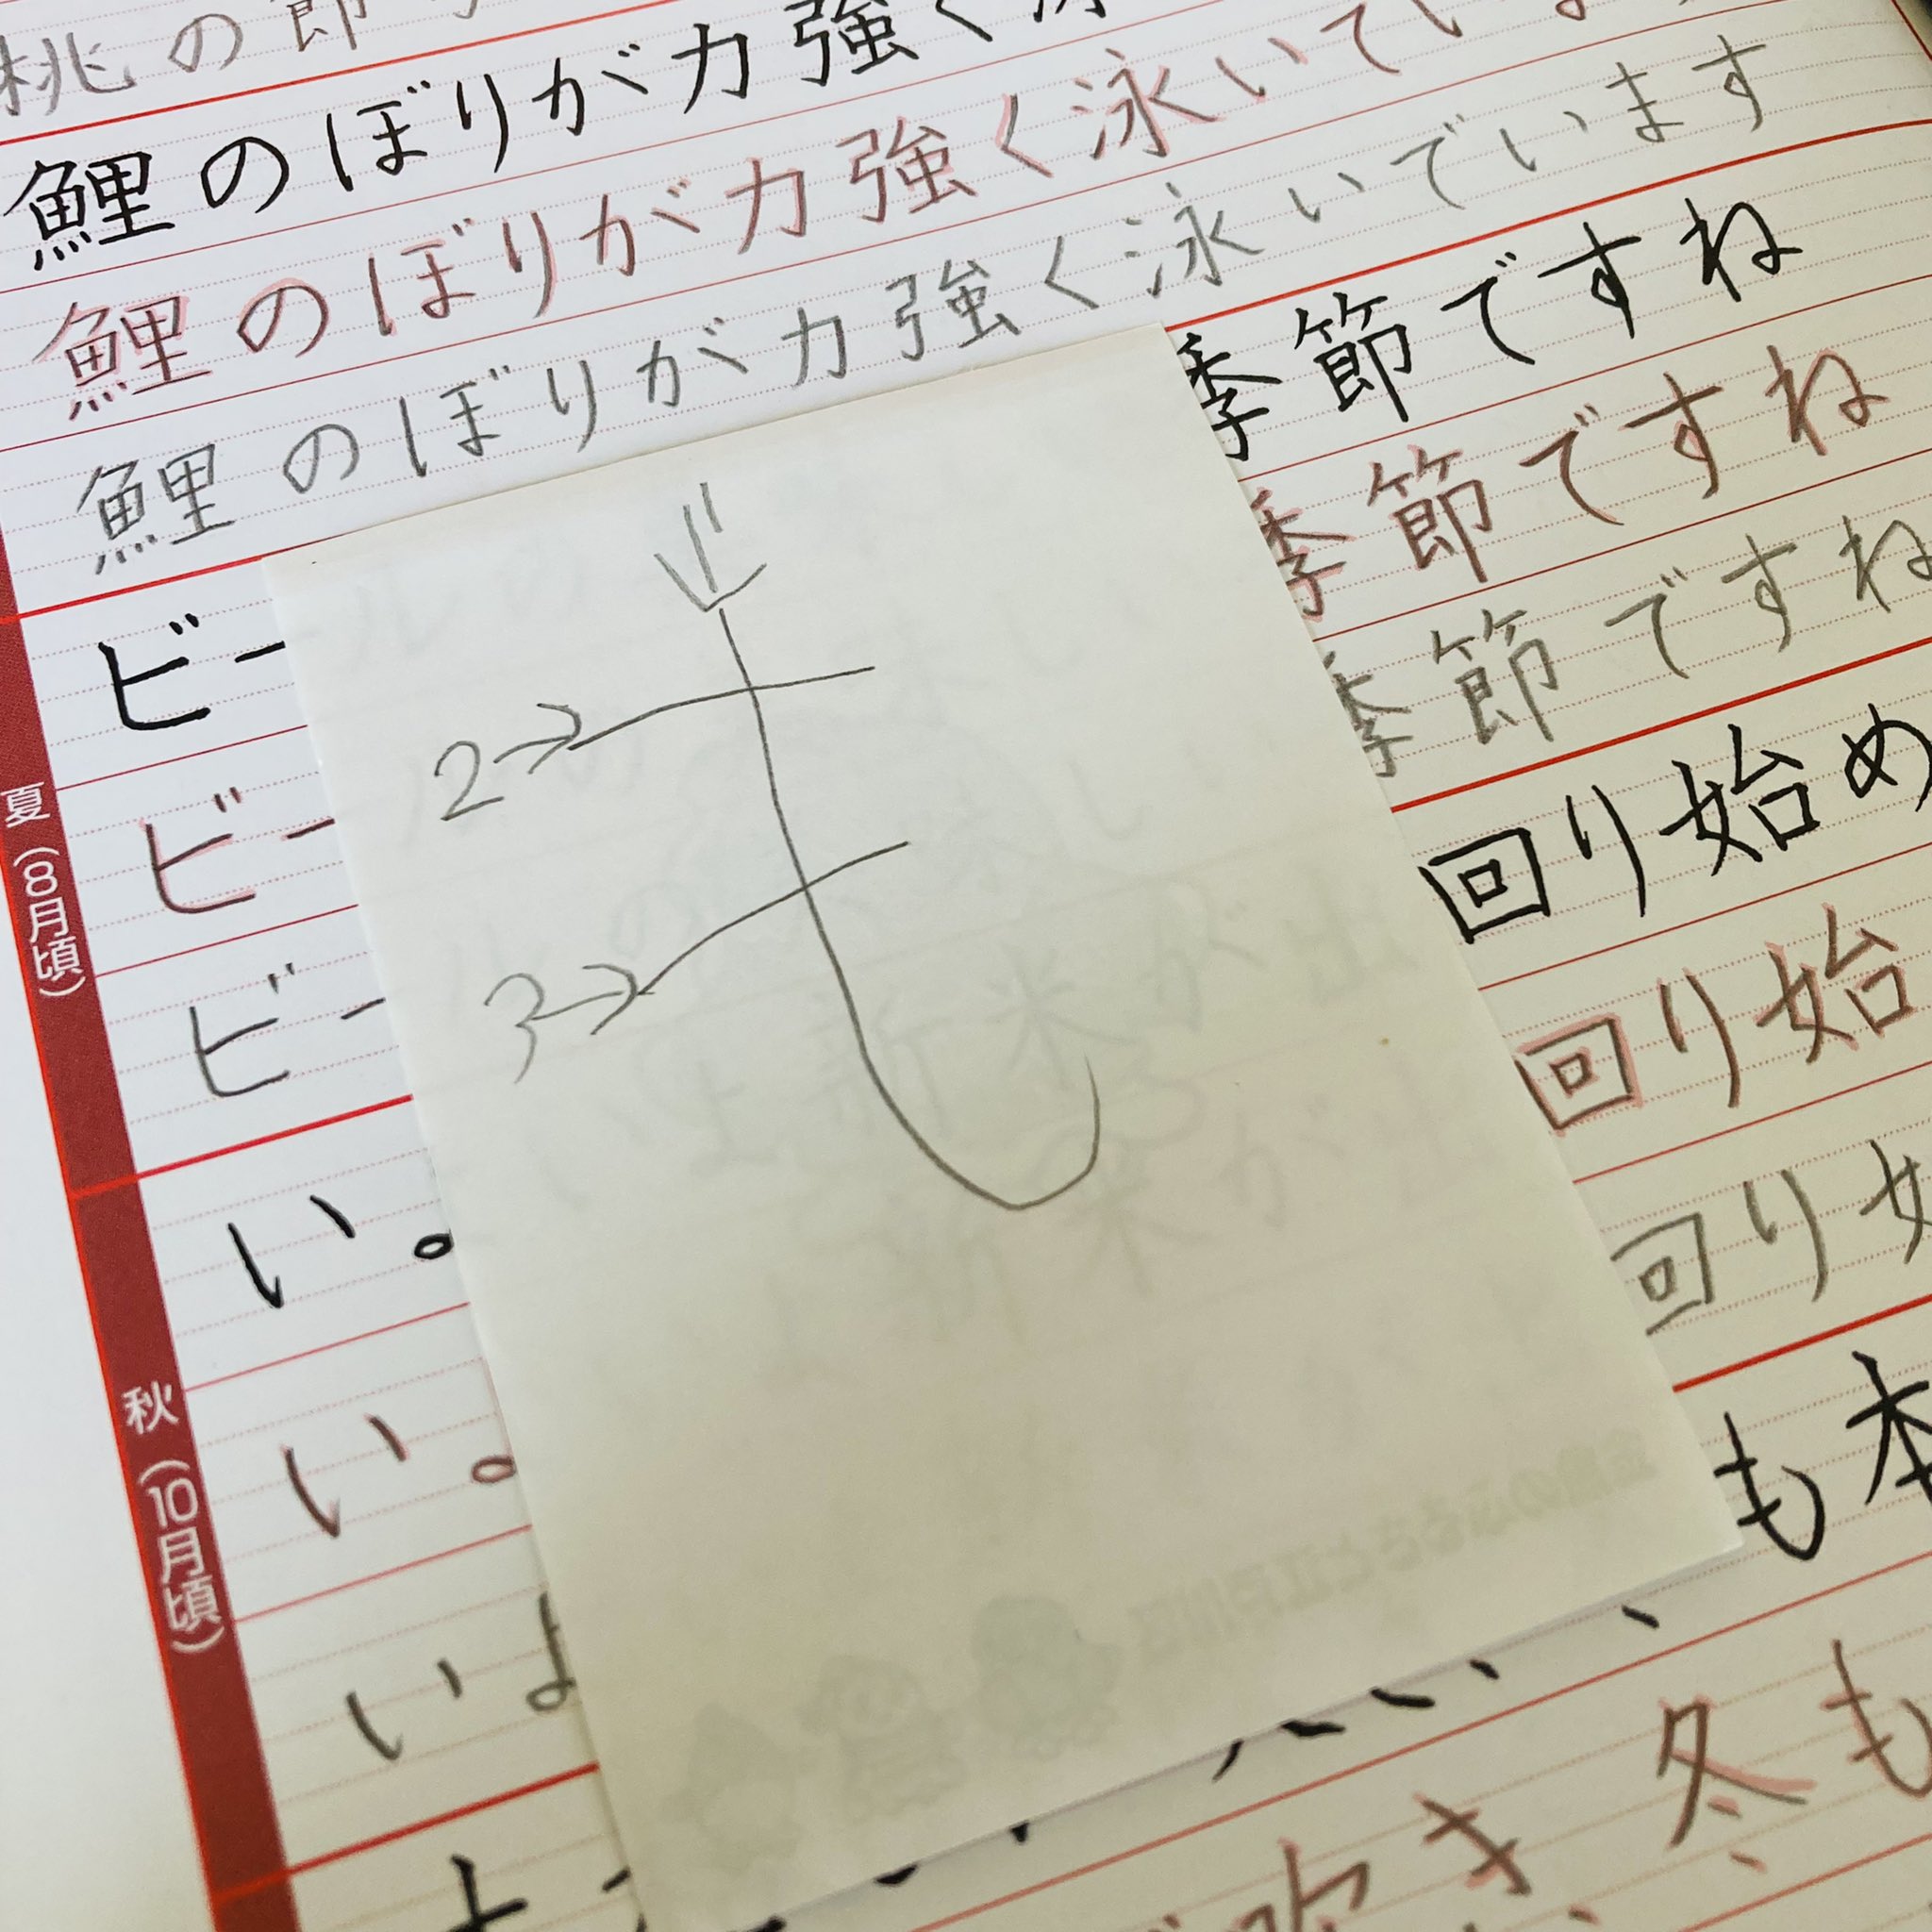 桃の節
鯉のぼりが力強く
鯉のぼりが力強く泳いていま
鯉のぼりが力強く泳いでいます
季節ですね
季節ですね
季節ですね
夏(8月頃)
ビー
ビー
ビー
1
2
3
も
回り始め
回り始
回り
秋(10月頃)
い
い
いよ
も本
冬も
吹き